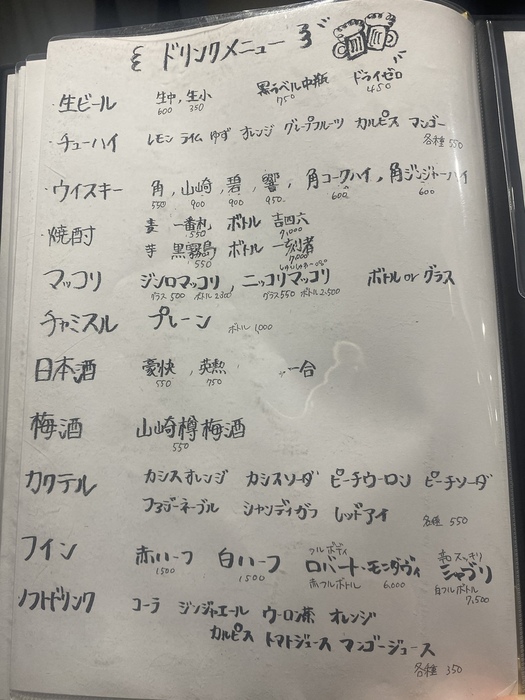 ドリンクメニュー
・生ビール 生中, 生小 黒ラベル中瓶 ドライゼロ
600 350 750 450
・チューハイ レモン ライム ゆず オレンジ グレープフルーツ カルピス マンゴー
各種 550
・ウイスキー 角, 山崎, 碧, 響, 角コークハイ, 角ジンジャーハイ
550 900 900 950 600 600
・焼酎 麦 一番札 ボトル 吉四六
550 7,000
芋 黒霧島 ボトル 一刻者
550 7,000
マッコリ ジンロマッコリ, ニッコリマッコリ ボトル or グラス
グラス 500 ボトル 2300 グラス 550 ボトル 2,500
チャミスル プレーン ボトル 1,000
日本酒 豪快, 英勲 一合
550 750
梅酒 山崎樽梅酒
550
カクテル カシスオレンジ カシスソーダ ピーチウーロン ピーチソーダ
ファジーネーブル シャンディガフ レッドアイ 各種 550
ワイン 赤ハーフ 白ハーフ フルボディ ロバート・モンダヴィ 和スッキリ シャブリ
1500 1500 赤フルボトル 6,000 白フルボトル 7,500
ソフトドリンク コーラ ジンジャエール ウーロン茶 オレンジ
カルピス トマトジュース マンゴージュース
各種 350